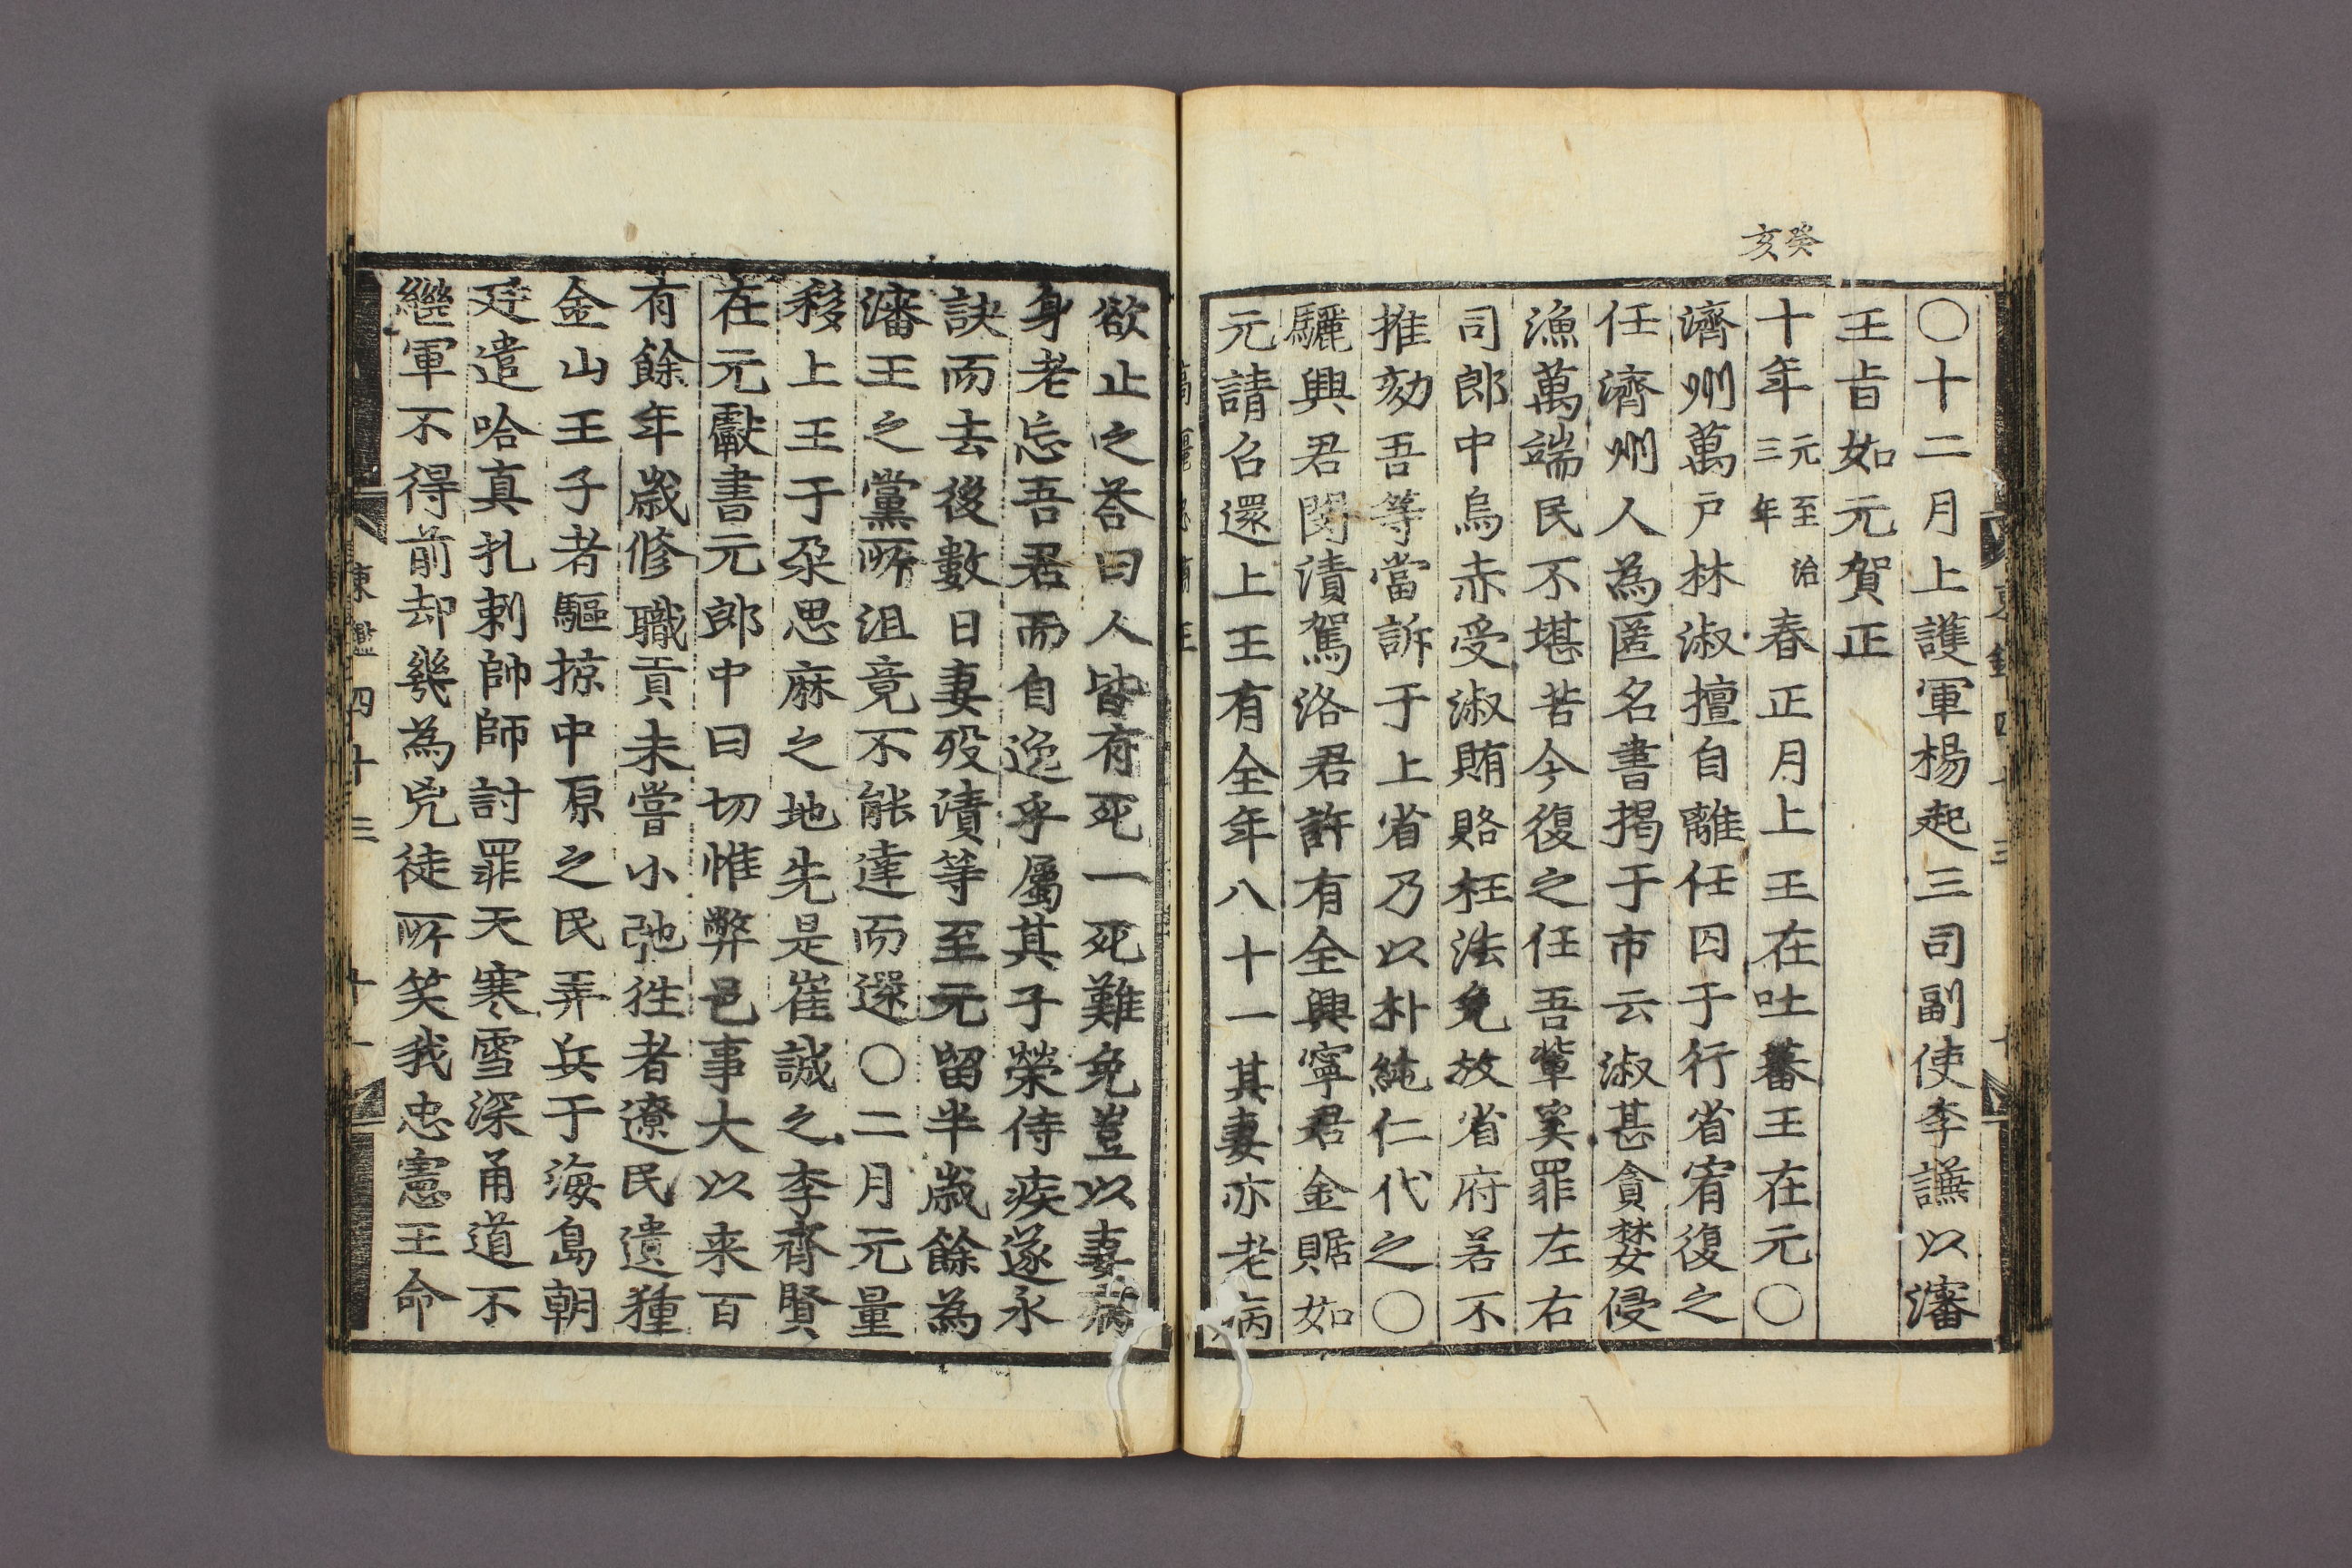 癸亥
○十二月上護軍楊起三司副使李讌以瀋
王旨如元賀正
十年元至治三年春正月上王在吐蕃王在元○
濟州萬戶林淑擅自離任囚于行省宥復之
任濟州人為匿名書揭于市云淑甚貪婪侵
漁萬端民不堪苦今復之任吾輩奚罪左右
司郎中烏赤受淑賄賂枉法免放省府若不
推劾吾等當訴于上省乃以朴純仁代之○
驪興君閔漬駕洛君許有全興寧君金賆如
元請召還上王有全年八十一其妻亦老病
欲止之荅曰人皆有死一死難免豈以妻病
身老忘吾君而自逸乎屬其子榮侍疾遂永
訣而去後數日妻歿漬等至元留半歲餘為
瀋王之黨所沮竟不能達而還○二月元量
移上王于朶思麻之地先是崔誠之李齊賢
在元獻書元郎中曰切惟弊邑事大以来百
有餘年歲修職貢未嘗小弛徃者遼民遺種
金山王子者驅掠中原之民弄兵于海島朝
廷遣哈真扎剌帥師討罪天寒雪深甬道不
繼軍不得前却幾為兇徒所笑我忠憲王命
東鑑四十三 十一